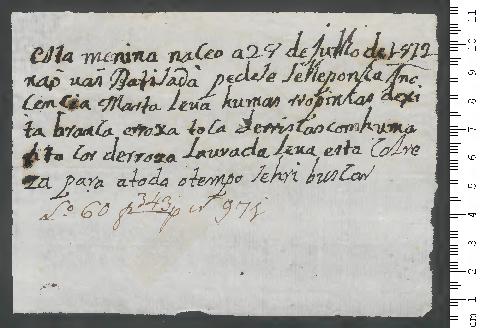 Esta menina naceo a 29 de Julho de 1812
não vai Batizada pedese se lhe ponha Ino
cencia Marta leva humas roopinhas de xi
ta branca e roxa toca de riscas com huma
fito cor de roza lavrada leva esta Clare
za para a todo o tempo se hir buscar
L.º 60 f 343 nº 971